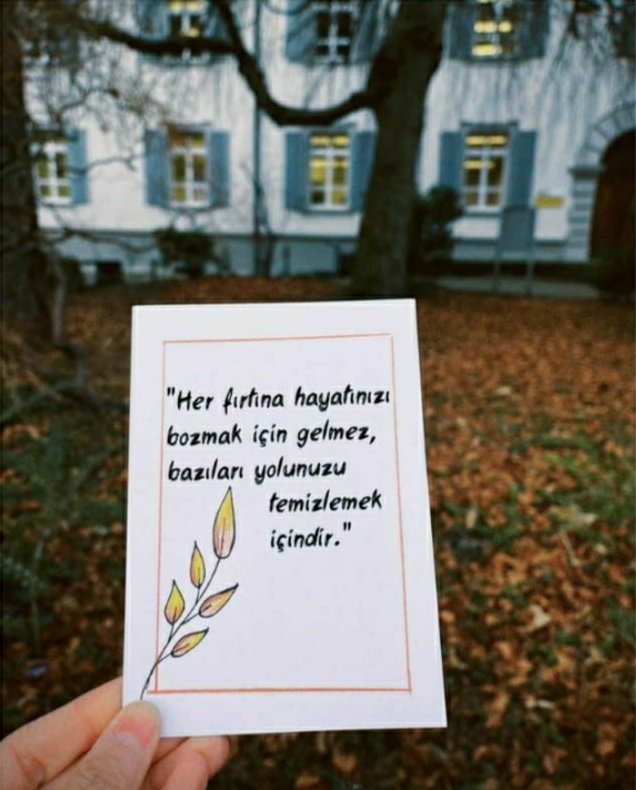 "Her fırtına hayatınızı
bozmak için gelmez,
bazıları yolunuzu
temizlemek
içindir."